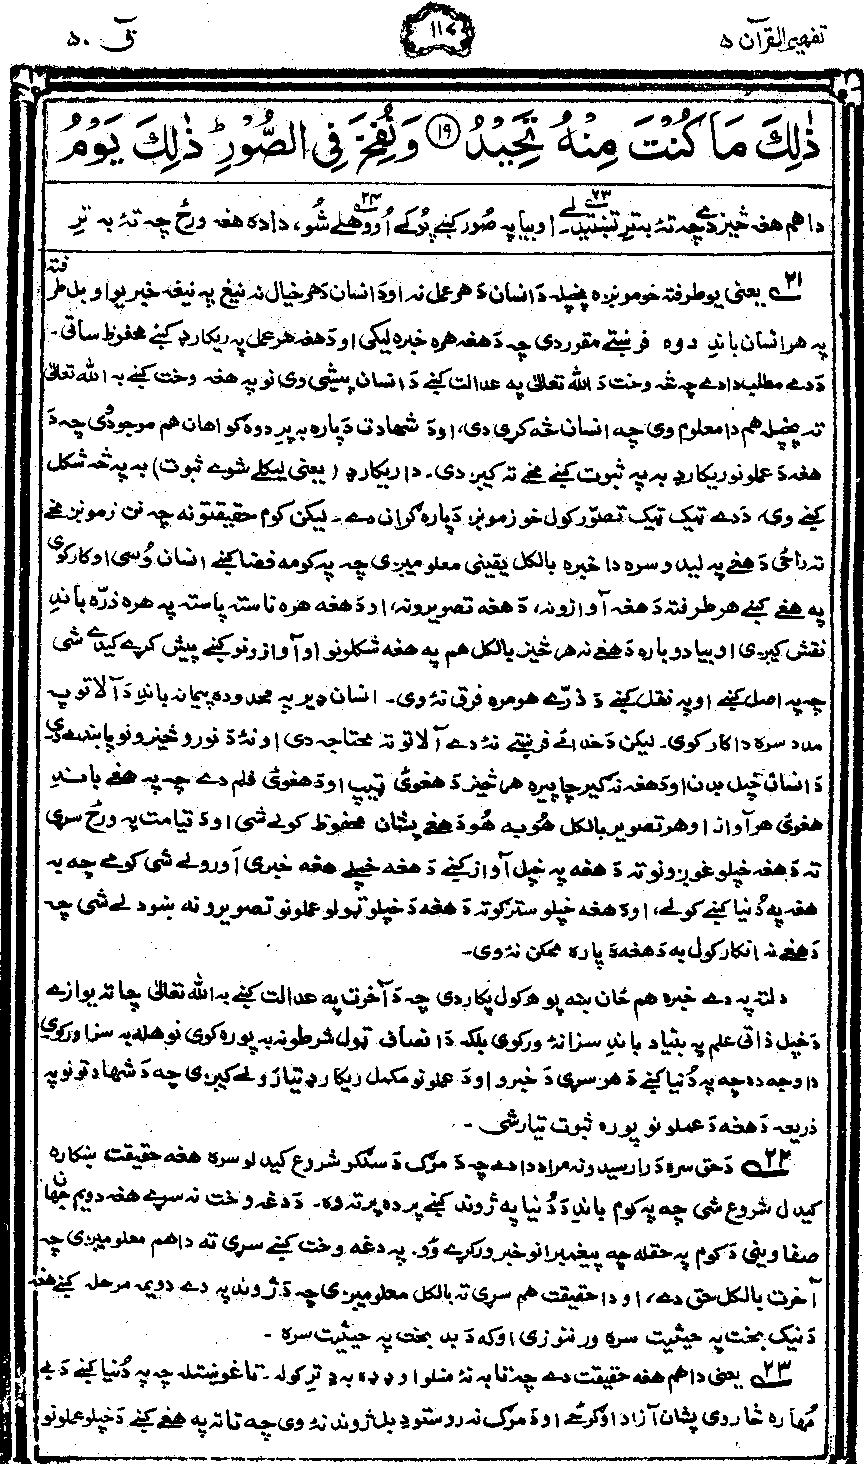 تفهیم القرآن ۵
۱۱۷
قٓ ۵۰
ذٰلِكَ مَا كُنْتَ مِنْهُ تَحِيْدُ ⑲ وَنُفِخَ فِي الصُّوْرِ ؕ ذٰلِكَ يَوْمُ
دا هم هغه څيز دے چه تۀ به ترِ تښتيدلے ۲۳ـ او بيا په صُور کښے پُوکے اُووهلے شُو ۲۴، دا ده هغه ورځ چه تۀ به ترِ
۲۱ـ يعنی يو طرفته خو مونږه پخپله دَ انسان دَ هر عمل نه او دَ انسان دَ هر خيال نه نيغ په نيغه خبر يو او بل طرفته
په هر انسان باندِ دوه فرښتے مقرر دی چه دَ هغه هره خبره ليکی او دَ هغه هر عمل په ريکارډ کښے محفوظ ساتی۔
دَ دے مطلب دا دے چه څه وخت دَ الله تعالیٰ په عدالت کښے دَ انسان پيشی وی نو په هغه وخت کښے به الله تعالیٰ
ته پخپله هم دا معلوم وی چه انسان څه کړی دی، او دَ شهادت دَپاره به پرِ دوه ګواهان هم موجود وی چه دَ
هغه دَ عملونو ريکارډ به په ثبوت کښے مخے ته کيږدی۔ دا ريکارډ (يعنی ليکلے شوے ثبوت) به په څه شکل
کښے وی، دَ دے ټيک ټيک تصوّر کول خو زمونږ دَپاره ګران دے۔ ليکن کوم حقيقتونه چه نن زمونږ مخے
ته راځی دَ هغے په ليدو سره دا خبره بالکل يقينی معلوميږی چه په کومه فضا کښے انسان اوسی او کار کوی
په هغے کښے هر طرفته دَ هغه آوازونه، دَ هغه تصويرونه، او دَ هغه هره ناسته پاسته په هره ذرّه باندِ
نقش کيږی او بيا دوباره دَ هغے نه هر څيز بالکل هم په هغه شکلونو او آوازونو کښے پيش کړے کيدے شی
چه په اصل کښے او په نقل کښے دَ ذرّے هومره فرق نۀ وی۔ انسان ډير په محدوده پيمانه باندِ دَ آلاتو په
مدد سره دا کار کوی۔ ليکن دَ خدائے فرښتے نۀ دے آلاتو ته محتاجے دی او نۀ دَ نورو څيزونو پابندے دی
دَ انسان خپل بدن او دَ هغه نه ګير چاپيره هر څيز دَ هغوی ټيپ او دَ هغوی فلم دے چه په هغے باندِ
هغوی هر آواز او هر تصوير بالکل هُوبه هُو دَ هغے پشان محفوظ کولے شی او دَ قيامت په ورځ سړی
ته دَ هغه خپلو غوږونو ته دَ هغه په خپل آواز کښے دَ هغه خپلے هغه خبرے اَورولے شی کومے چه به
هغه په دُنيا کښے کولے، او دَ هغه خپلو سترګو ته دَ هغه دَ خپلو ټولو عملونو تصويرونه ښودلے شی چه
دَ هغے نه انکار کول به دَ هغه دَپاره ممکن نۀ وی۔
دلته په دے خبره هم ځان ښه پوهه کول پکار دی چه دَ آخرت په عدالت کښے به الله تعالیٰ چا ته يوازے
دَ خپل ذاتی علم په بنياد باندِ سزا نۀ ورکوی بلکه دَ انصاف ټول شرطونه به پوره کوی نو هله به سزا ورکوی
دا وجه ده چه په دُنيا کښے دَ هر سړی دَ خبرو او دَ عملونو مکمل ريکارډ تيارولے کيږی چه دَ شهادتونو په
ذريعه دَ هغه دَ عملونو پوره ثبوت تيار شی۔
۲۲ـ دَ حق سره دَ رارسيدو نه مراد دا دے چه دَ مرګ دَ سلګو شروع کيدلو سره هغه حقيقت ښکاره
کيدل شروع شی چه په کوم باندِ دَ دُنيا په ژوند کښے پرده پرته وه۔ دَ دغه وخت نه سړے هغه دويم جهان
صفا وينی دَ کوم په حقله چه پيغمبرانو خبر ورکړے وُو۔ په دغه وخت کښے سړی ته دا هم معلوميږی چه
آخرت بالکل حق دے، او دا حقيقت هم سړی ته بالکل معلوميږی چه دَ ژوند په دے دويمه مرحله کښے هغه
دَ نيک بخت په حيثيت سره ورننوزی او که دَ بدبخت په حيثيت سره۔
۲۳ـ يعنی دا هم هغه حقيقت دے چه تا به نۀ منلو او ډډه به دِ ترِ کوله۔ تا غوښتله چه په دُنيا کښے دَ بے
مُهاره څاروی پشان آزاد اوګرځے او دَ مرګ نه روستو دِ بل ژوند نۀ وی چه تا ته په هغے کښے دَ خپلو عملونو